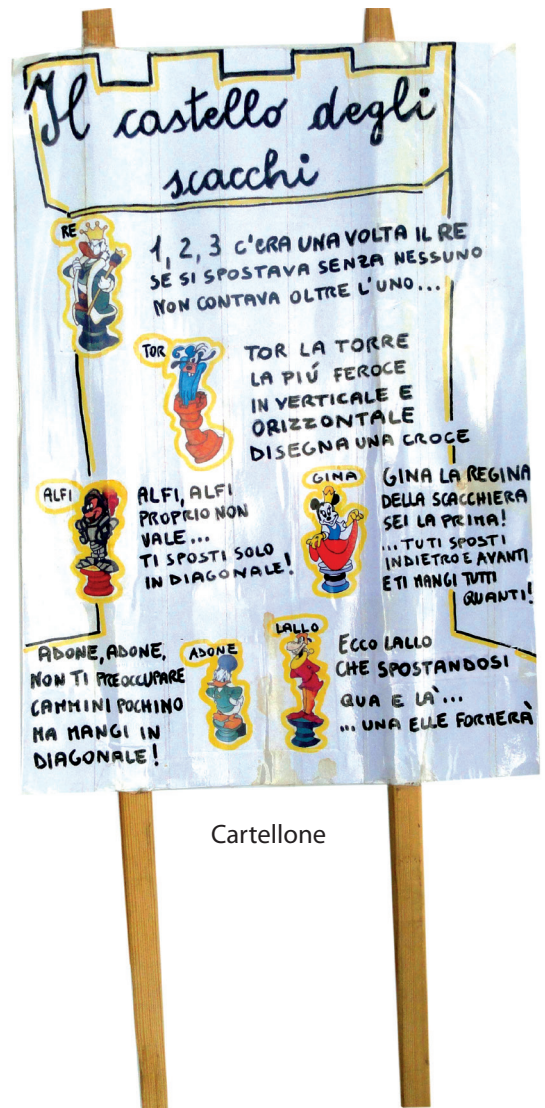 Il castello degli
scacchi
RE
1, 2, 3 C'ERA UNA VOLTA IL RE
SE SI SPOSTAVA SENZA NESSUNO
NON CONTAVA OLTRE L'UNO...
TOR
TOR LA TORRE
LA PIÚ FEROCE
IN VERTICALE E
ORIZZONTALE
DISEGNA UNA CROCE
ALFI
ALFI, ALFI
PROPRIO NON
VALE...
TI SPOSTI SOLO
IN DIAGONALE!
GINA
GINA LA REGINA
DELLA SCACCHIERA
SEI LA PRIMA!
...TU TI SPOSTI
INDIETRO E AVANTI
E TI MANGI TUTTI
QUANTI!
ADONE, ADONE,
NON TI PREOCCUPARE
CAMMINI POCHINO
MA MANGI IN
DIAGONALE!
ADONE
LALLO
ECCO LALLO
CHE SPOSTANDOSI
QUA E LÀ...
... UNA ELLE FORMERÀ
Cartellone